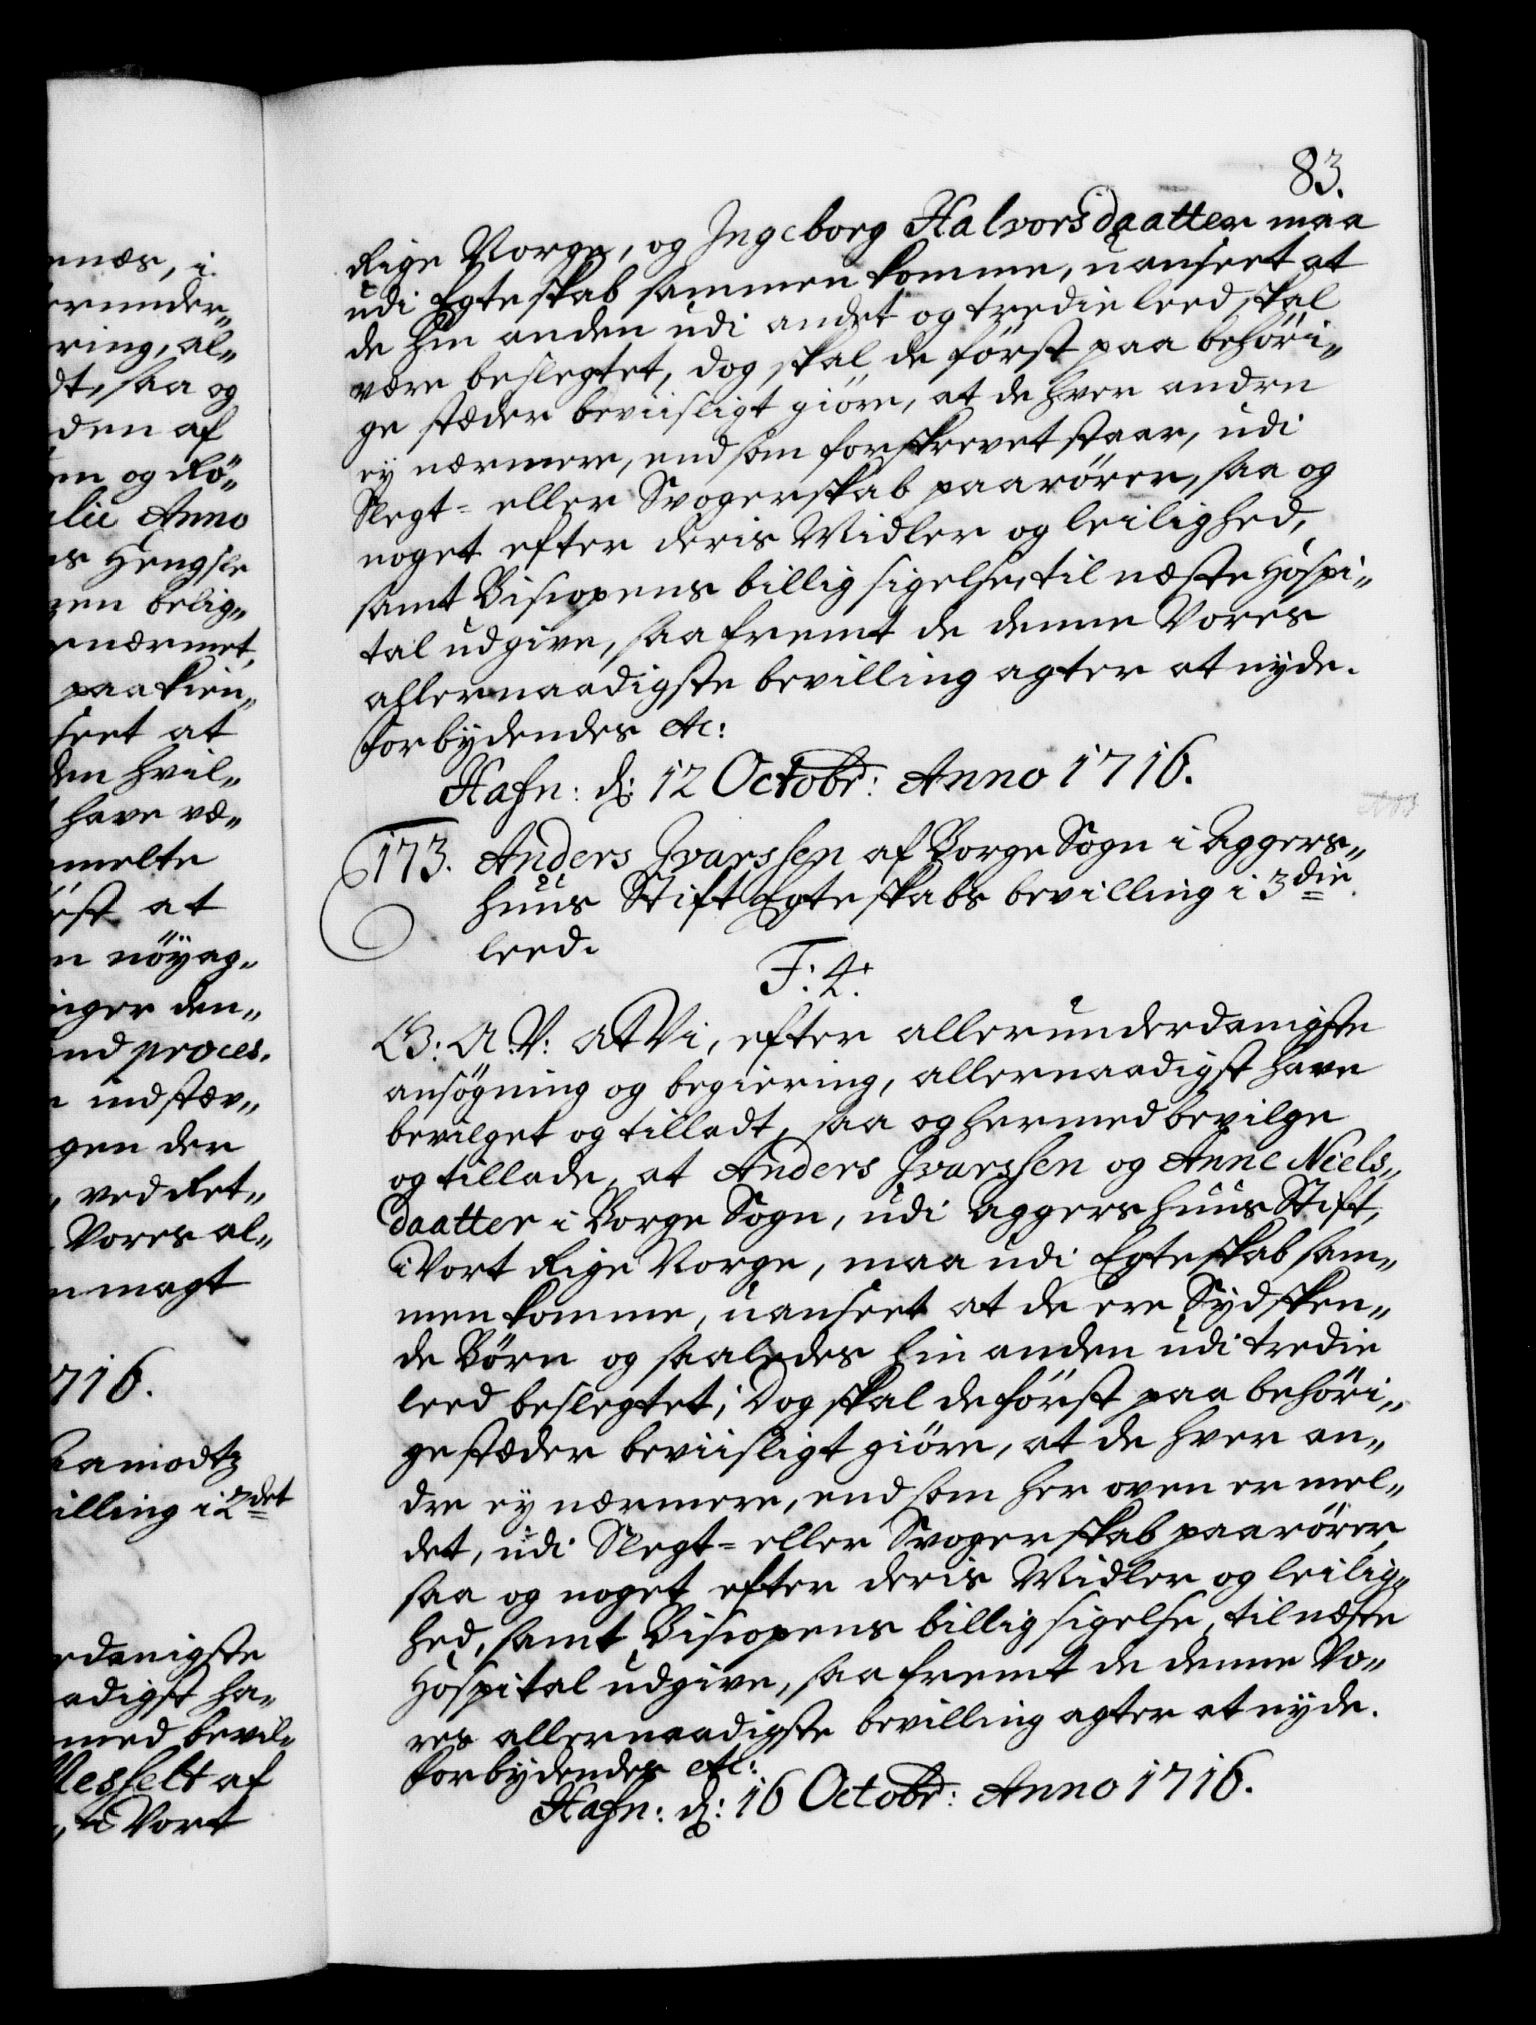 83.
Rige Norge, og Ingeborg Halvorsdaatter maa
udi Egteskab sammen komme, uanseet at
de hin anden udi andet og tredie leed skal
være beslegtet, dog skal de først paa behöri„
ge stæder beviisligt giöre, at de hver andre
ey nærmere, end som forskrevet staar, udi
Slegt- eller Svogerskab paarörer, saa og
noget efter deris Midler og leilighed,
samt Biscopens billig sigelse, til næste Hospi„
tal udgive, saafremt de denne Vores
allernaadigste bevilling agter at nyde.
Forbydendes etc:
Hafn: d: 12 Octobr: Anno 1716.
173. Anders Ivarssen af Borge Sogn i Aggers„
huus Stift Egteskabs bevilling i 3die
leed.
F: 4.
G: A: V: At Vi, efter allerunderdanigste
ansögning og begiering, allernaadigst have
bevilget og tilladt, saa og hermed bevilge
og tillade, at Anders Ivarssen og Anne Niels„
daatter i Borge Sogn, udi Aggershuus Stift,
i Vort Rige Norge, maa udi Egteskab sam„
men komme, uanseet at de ere Sydsken„
de Börn og saaledes hin anden udi tredie
leed beslegtet; Dog skal de först paa behöri„
ge stæder beviisligt giöre, at de hver an„
dre ey nærmere, end som her oven er mel„
det, udi Slegt- eller Svogerskab paarörer,
saa og noget efter deris Midler og leilig„
hed, samt Biscopens billig sigelse, til næste
Hospital udgive, saafremt de denne Vo„
res allernaadigste bevilling agter at nyde.
Forbydendes etc:
Hafn: d: 16 Octobr: Anno 1716.